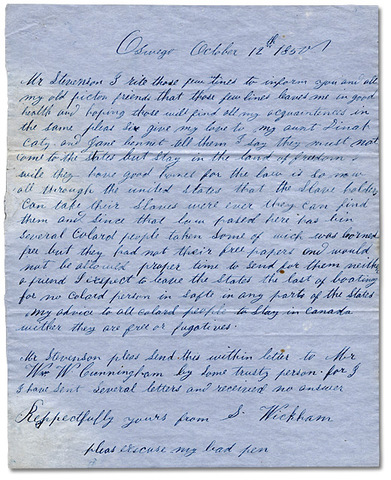 Oswego October 12th 1850
Mr Stevenson I rite those few lines to inform you and all
my old picton friends that those few lines leaves me in good
health and hoping those will find all my acquaintences in
the same pleas Sir give my love to my aunt Dinah
Caty and Jane hennet all them I say they must not
come to the states but stay in the land of freedom
wile they have good homes for the law is so now
all through the united states that the slave holders
can take their slaves were ever they can find
them and since that law pased here has bin
several colard people taken some of wich was borned
free but they had not their free papers and would
not be allowed proper time to send for them neither
a friend I expect to leave the States the last of boating
for no colard person is safte in any parts of the States
my advice to all colard people to stay in Canada
wither they are free or fugatives.
Mr Stevenson pleas send this within letter to Mr
Wm W Cunningham by some trusty person for I
I have sent several letters and received no answer
Respectfully yours from S. Wickham
pleas excuse my bad pen